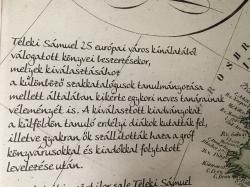 Teleki Sámuel 25 európai város kínálatából
válogatott könyvei beszerzésekor,
melyek kiválasztásához
a különböző szakkatalógusok tanulmányozása
mellett általában kikérte egykori neves tanárainak
véleményét is. A kiválasztott kiadványokat
a külföldön tanuló erdélyi diákok kutatták fel,
illetve gyakran ők szállították haza a gróf
könyvárusokkal és kiadókkal folytatott
levelezése után.
Teleki Sámuel